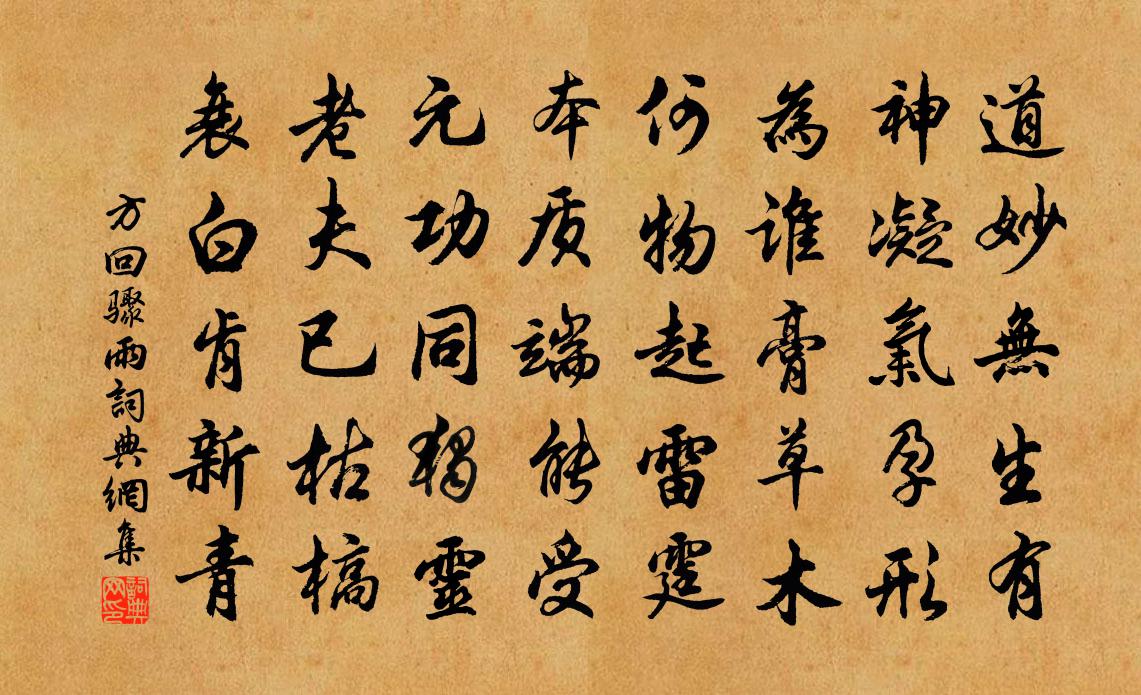 道妙無生有
神凝氣孕形
為誰膏草木
何物起雷霆
本质端能受
元功同獨靈
老夫已枯槁
衰白肯新青
方回骤雨詞典網集
詞典網印